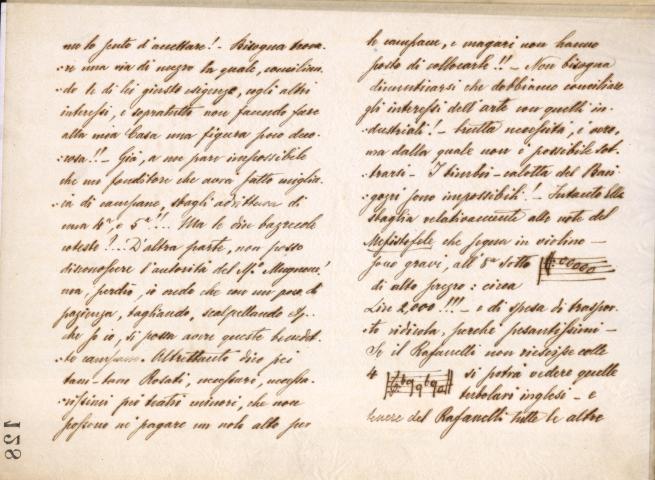 me la sento d'accettare! - Bisogna trova-
-re una via di mezzo la quale, concilian-
do le di lei giuste esigenze, cogli altri
interessi, e sopratutto non facendo fare
alla mia Casa una figura poco deco-
rosa!! - Già, a me pare impossibile
che un fonditore che avrà fatto miglia-
ia di campane, sbagli addirittura di
una 4ª, e 5ª!!! Ma le son bazzecole
coteste!... D'altra parte, non posso
disconoscere l'autorità del Mº Mugnone!
ma, perdio, io credo che con un poco di
pazienza, tagliando, scalpellando
che so io, si possa avere queste benedet-
-te campane. Altrettanto dico pei
tam-tam Rosati, necessari, necessa-
rissimi pei teatri minori, che non
possono nè pagare un nolo alto per
le campane, e magari non hanno
posto di collocarle!! - Non bisogna
dimenticarsi che dobbiamo conciliare
gli interessi dell'arte con quelli in-
dustriali! - brutta necessità, è vero,
ma dalla quale non è possibile sot-
-trarsi - I timbri-calotta del Bari-
gozzi sono impossibili! - Intanto Ella
sbaglia relativamente alle note del
Mefistofele che segna in violino -
sono gravi, all'8ª sotto
di alto prezzo: circa
Lire 2,000!!! - e di spesa di traspor-
-to ridicola, perchè pesantissimi -
Se il Rafanelli non riescisse colle
4 si potrà vedere quelle
tubolari inglesi - e
tenere del Rafanelli tutte le altre
128